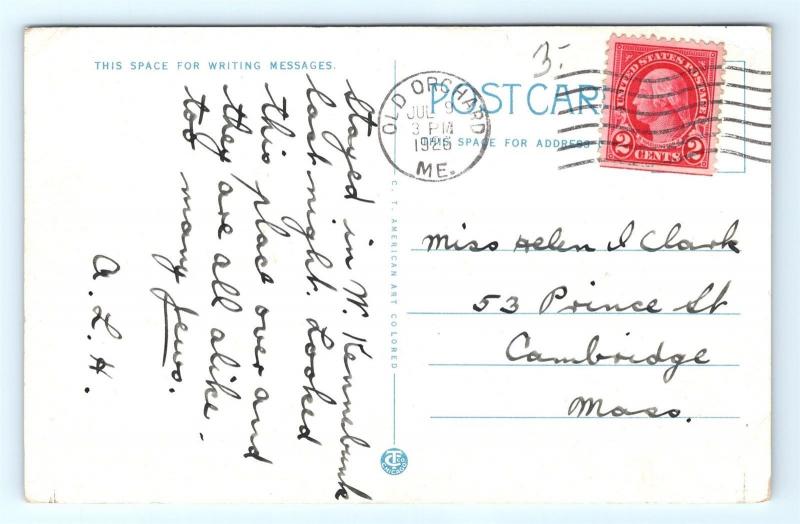 THIS SPACE FOR WRITING MESSAGES.
Stayed in W. Kennebunk
last night. Looked
this place over and
they are all alike.
too many Jews.
A. L. H.
3-
POST CAR
THIS SPACE FOR ADDRESS
OLD ORCHARD
JUL 9
3 PM
ME.
UNITED STATES POSTAGE
2 CENTS 2
C. T. AMERICAN ART COLORED
Miss Helen I Clark
53 Prince St
Cambridge
Mass.
CHICAGO